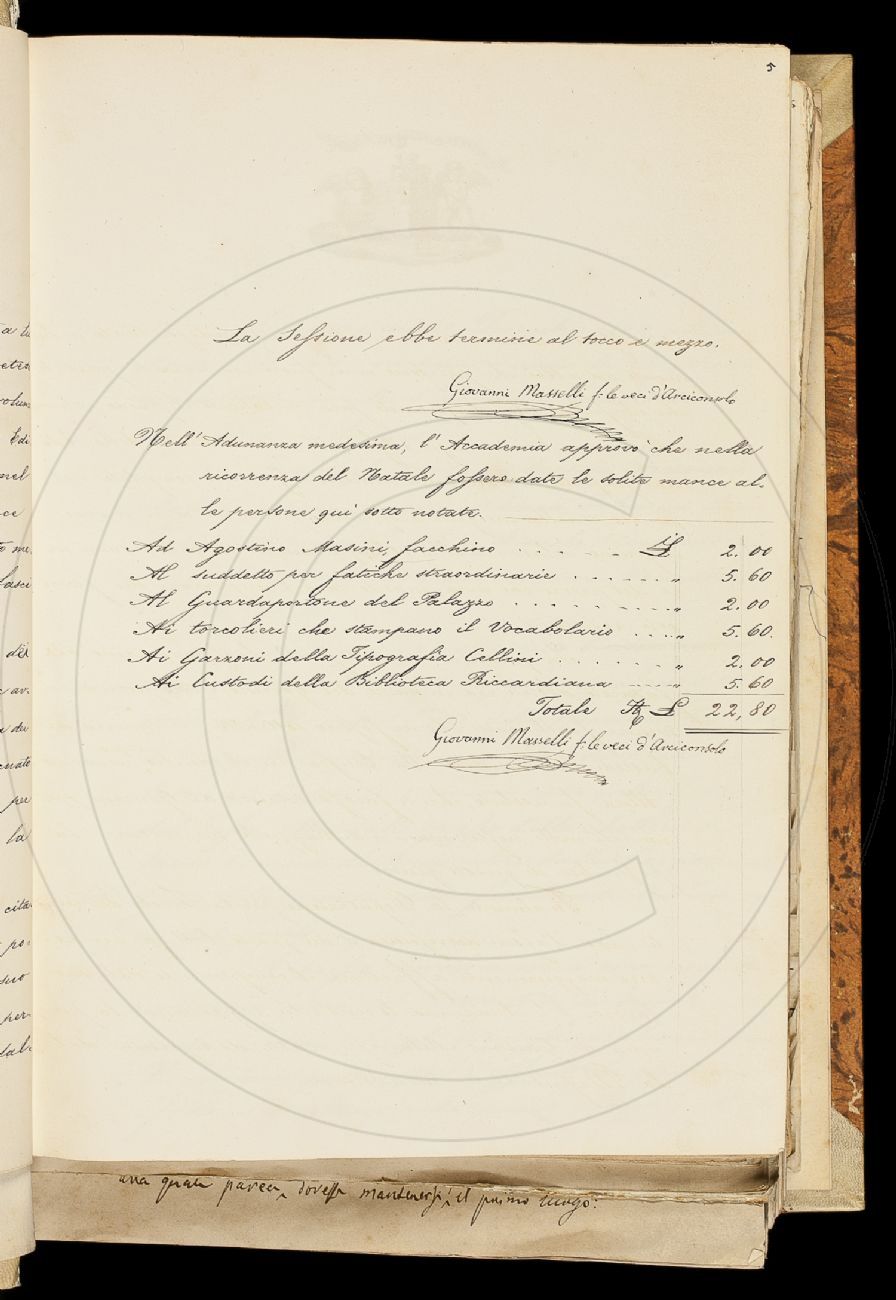 5
La Sessione ebbe termine al tocco e mezzo.
Giovanni Masselli f. le veci d'Arciconsolo
Nell' Adunanza medesima, l' Accademia approvò che nella
ricorrenza del Natale fossero date le solite mance al-
le persone qui sotto notate.
Ad Agostino Masini, facchino . . . . £ 2. 00
Al suddetto per fatiche straordinarie . . . . . . „ 5. 60
Al Guardaportone del Palazzo . . . . . . . „ 2. 00
Ai torcolieri che stampano il Vocabolario . . . „ 5. 60.
Ai Garzoni della Tipografia Cellini . . . . . . „ 2. 00
Ai Custodi della Biblioteca Riccardiana . . . . „ 5. 60
Totale £ 22, 80
Giovanni Masselli f. le veci d'Arciconsolo
quale parea, dovesse mantenersi il primo luogo.
nel
per
la
cita
per-